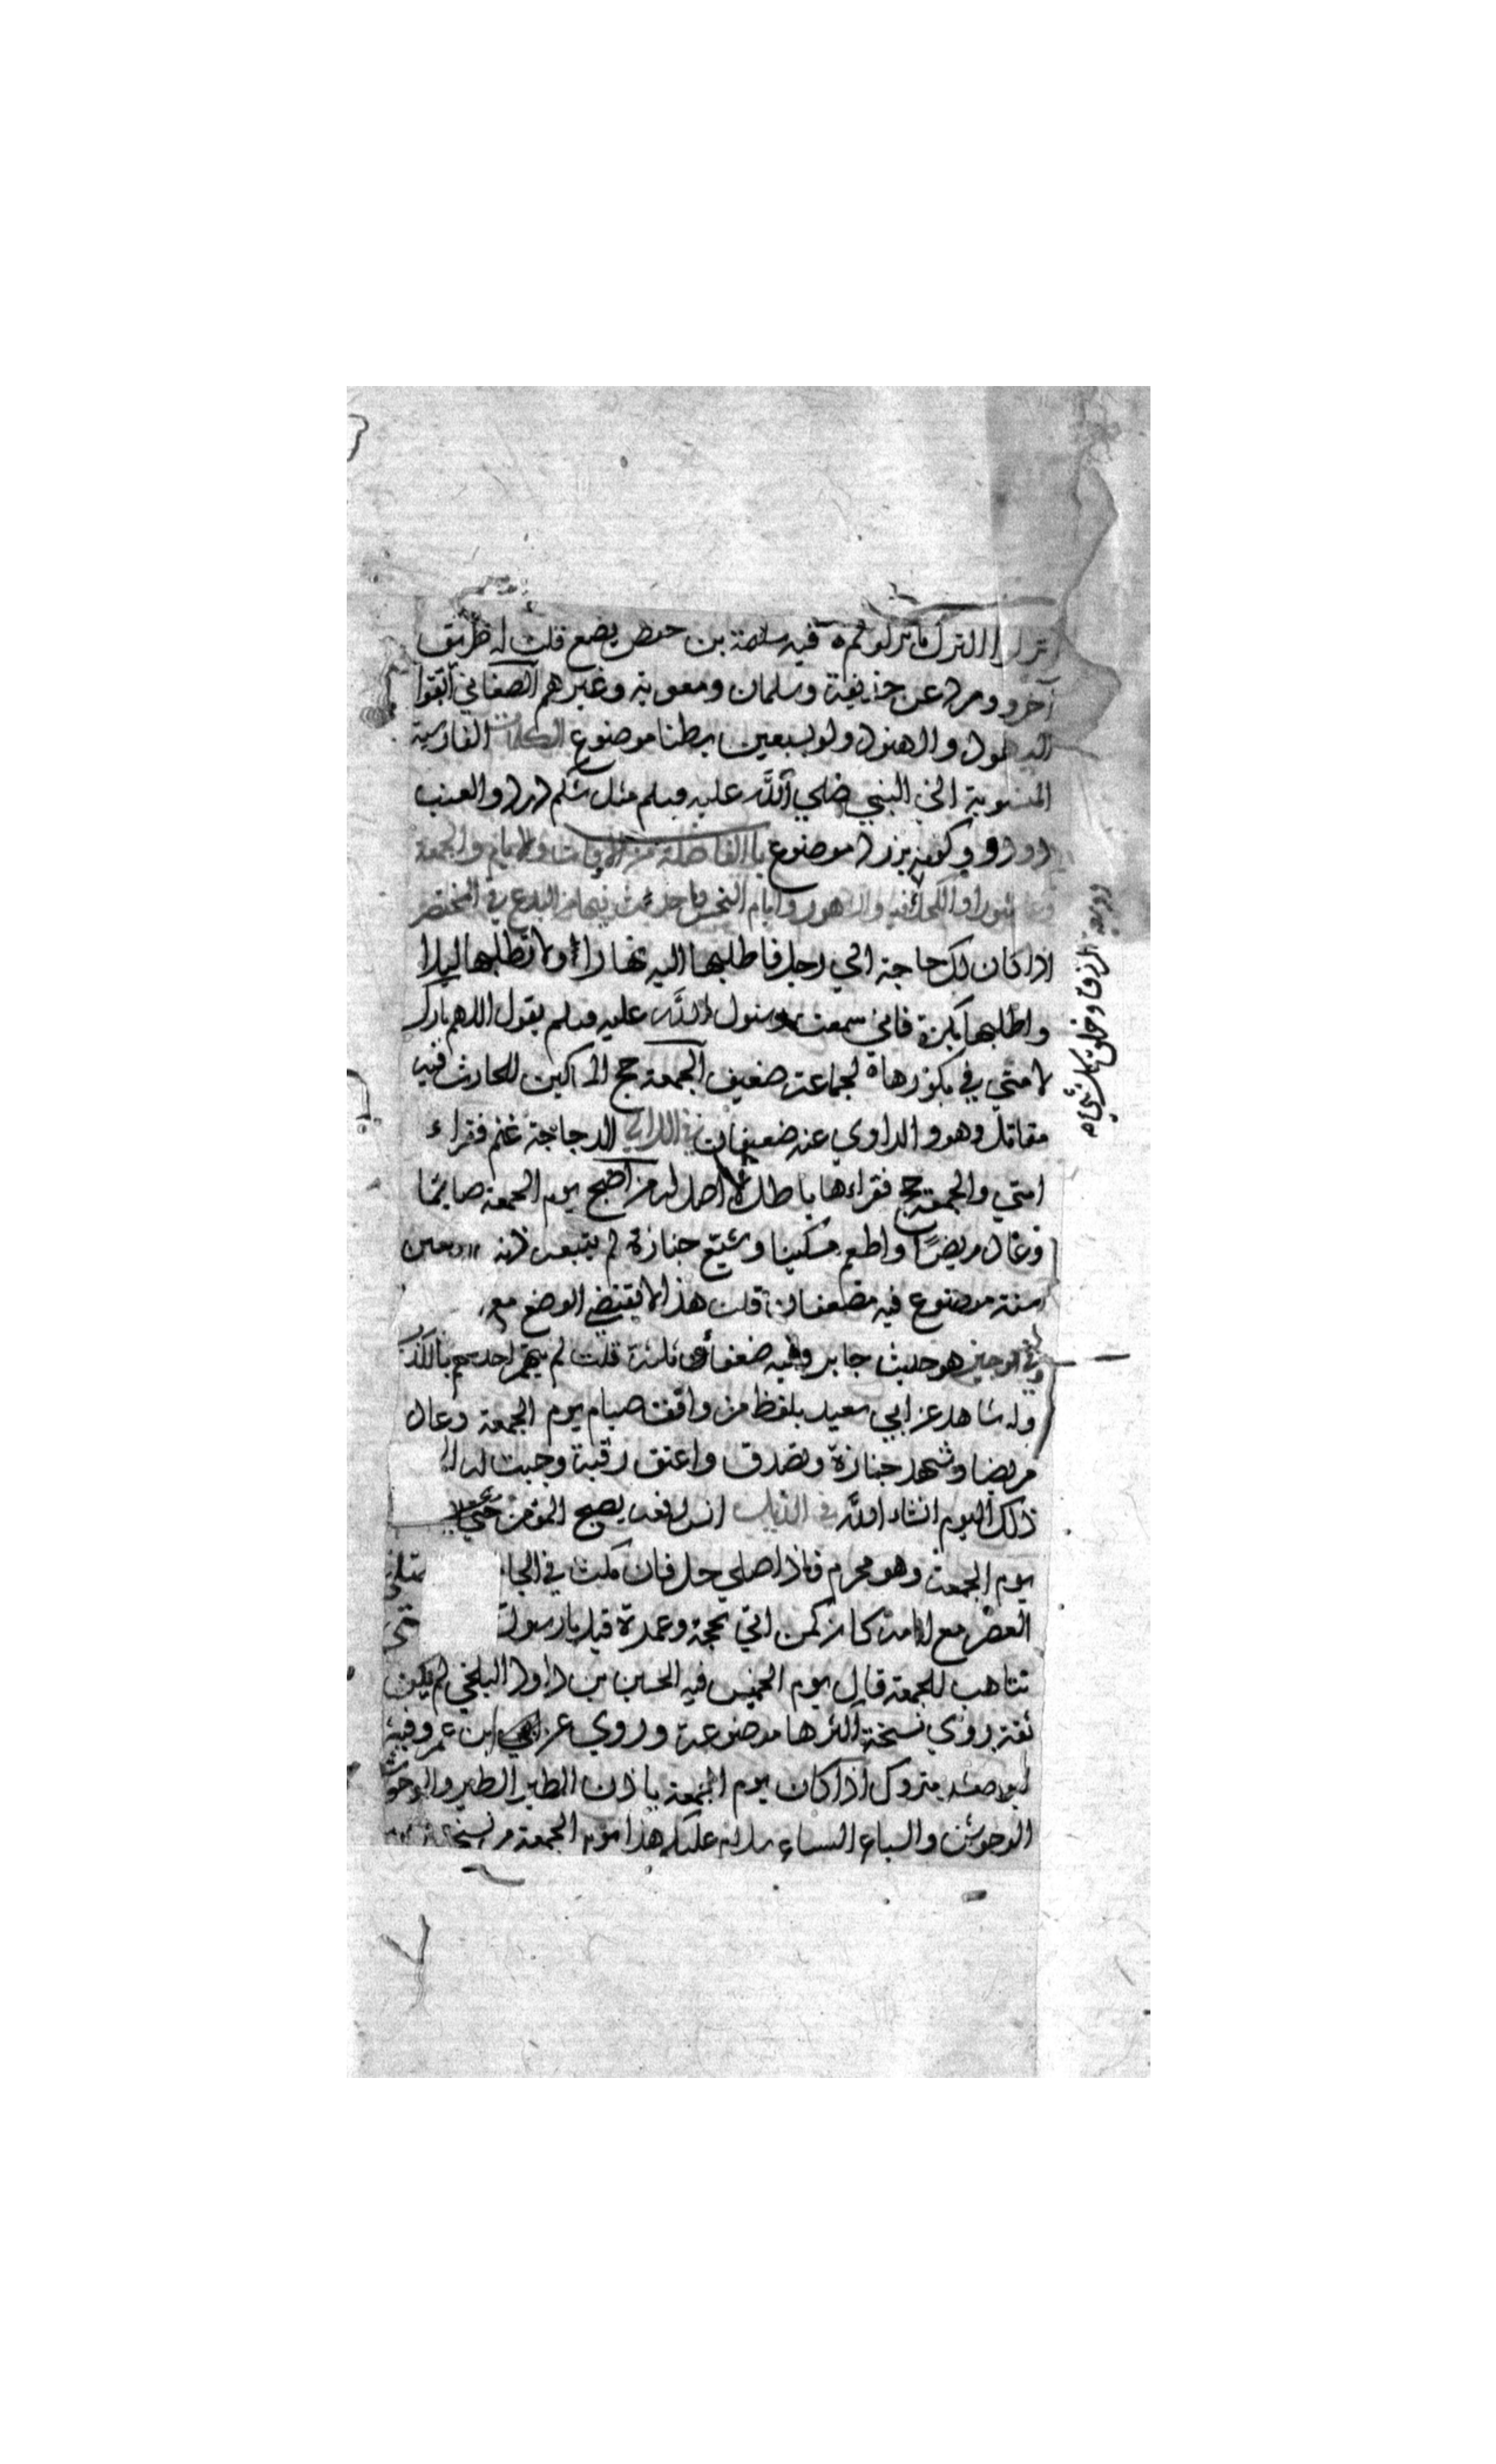 اتركوا الترك ما تركوكم فيه سلمة بن حفص يضع قلت له طريق
آخر وورد عن حذيفة وسلمان ومعوية وغيرهم الصغاني اتقوا
اليهود والهنود ولو بسبعين بطنا موضوع الكلمات الفارسية
المنسوبة الى النبي صلي الله عليه وسلم مثل شكم درد والعنب
دو دو وكونه يزرد موضوع باب الفاضلة من الاوقات والايام والجمعة
وعاشورا والكحل فيه والشهور وايام النحس وما حدث فيها من البدع في المختصر
اذا كان لك حاجة الي رجل فاطلبها اليه نهارا ولا تطلبها ليلا
واطلبها بكرة فاني سمعت رسول الله عليه وسلم يقول اللهم بارك
لامتي في بكورها لجماعة ضعيف الجمعة حج المساكين للحارث فيه
مقاتل وهو والراوي عنه ضعيفان في اللالي الدجاجة غنم فقراء
امتي والجمعة حج فقراءها باطل لا اصل له من اصبح يوم الجمعة صايما
وعاد مريضا واطعم مسكينا وشيع جنازة لم يتبعه ذنب اربعين
سنة موضوع فيه مضعفان قلت هذا لا يقتضي الوضع مع
في الوجيز هو حديث جابر وفيه ضعفاء ثلثة قلت لم يتهم احدهم بالكذب
وله شاهد عن ابي سعيد بلفظ من وافق صيام يوم الجمعة وعاد
مريضا وشهد جنازة وتصدق واعتق رقبة وجبت له
ذلك اليوم انشاء الله في الذيل انس رفعه يصبح المؤمن
يوم الجمعة وهو محرم فاذا صلي حل فان مكث في الجا
العصر مع امامه كان كمن اتي بحجة وعمرة قيل يا رسول متى
نتاهب للجمعة قال يوم الخميس فيه الحسين بن داود البلخي لم يكن
ثقة يروي نسخة اكثرها موضوعة وروي عن ابن عمر وفيه
متروك اذا كان يوم الجمعة ياذن الطير الطير والوحوش
الوحوش والسباع السباع سلام عليكم هذا يوم الجمعة من نسخة